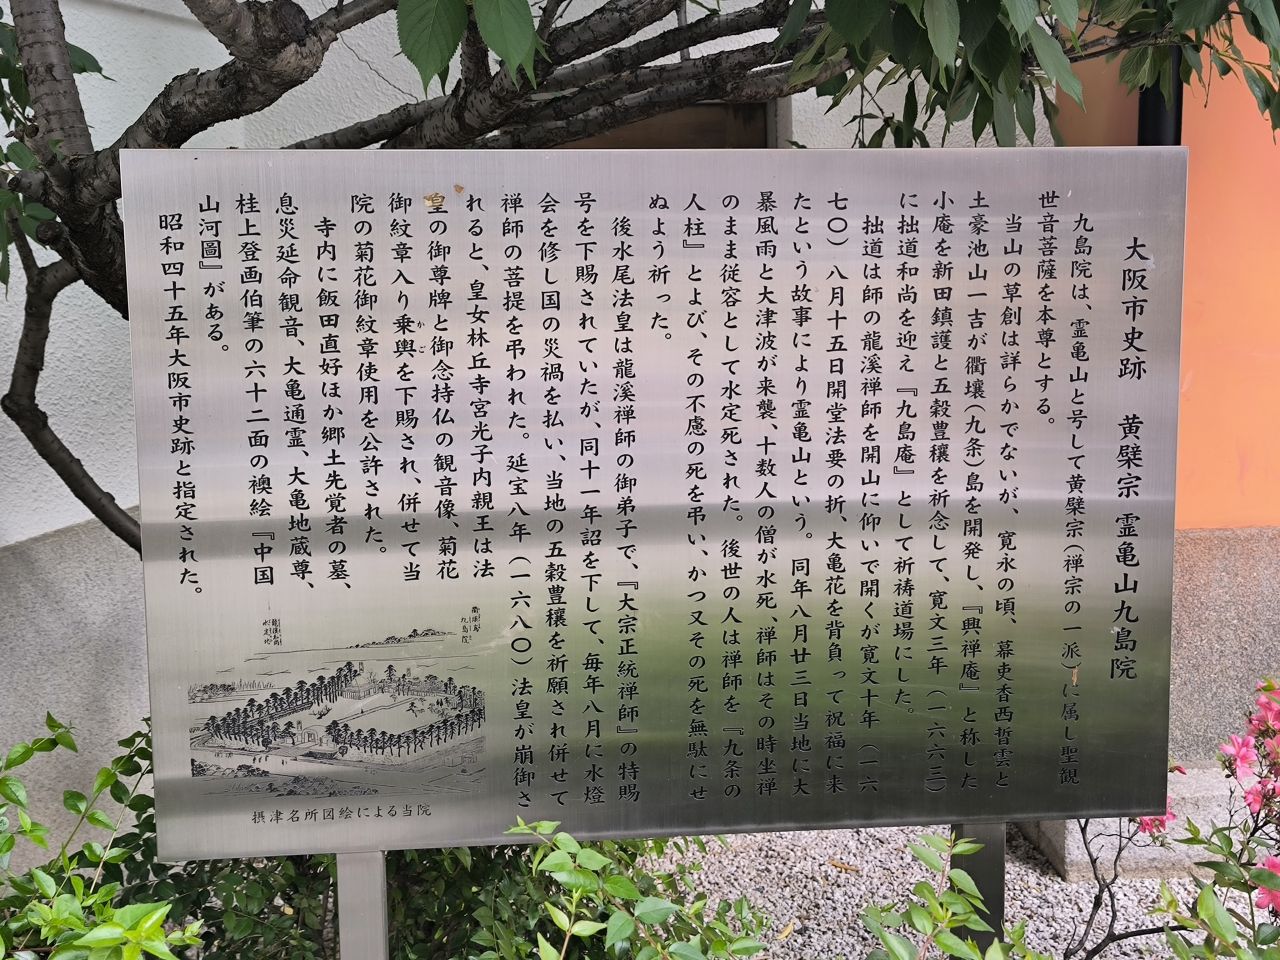 大阪市史跡　黄檗宗 霊亀山九島院
九島院は、霊亀山と号して黄檗宗（禅宗の一派）に属し聖観
世音菩薩を本尊とする。
当山の草創は詳らかでないが、寛永の頃、幕吏香西晢雲と
土豪池山一吉が衢壤（九条）島を開発し、『興禅庵』と称した
小庵を新田鎮護と五穀豊穣を祈念して、寛文三年（一六六三）
に拙道和尚を迎え『九島庵』として祈祷道場にした。
拙道は師の龍溪禅師を開山に仰いで開くが寛文十年（一六
七〇）八月十五日開堂法要の折、大亀花を背負って祝福に来
たという故事により霊亀山という。同年八月廿三日当地に大
暴風雨と大津波が来襲、十数人の僧が水死、禅師はその時坐禅
のまま従容として水定死された。後世の人は禅師を『九条の
人柱』とよび、その不慮の死を弔い、かつ又その死を無駄にせ
ぬよう祈った。
後水尾法皇は龍溪禅師の御弟子で、『大宗正統禅師』の特賜
号を下賜されていたが、同十一年詔を下して、毎年八月に水燈
会を修し国の災禍を払い、当地の五穀豊穣を祈願され併せて
禅師の菩提を弔われた。延宝八年（一六八〇）法皇が崩御さ
れると、皇女林丘寺宮光子内親王は法
皇の御尊牌と御念持仏の観音像、菊花
御紋章入り乗輿を下賜され、併せて当
かご
院の菊花御紋章使用を公許された。
寺内に飯田直好ほか郷土先覚者の墓、
息災延命観音、大亀通霊、大亀地蔵尊、
桂上登画伯筆の六十二面の襖絵『中国
山河圖』がある。
昭和四十五年大阪市史跡と指定された。
九島院
摂津名所図絵による当院